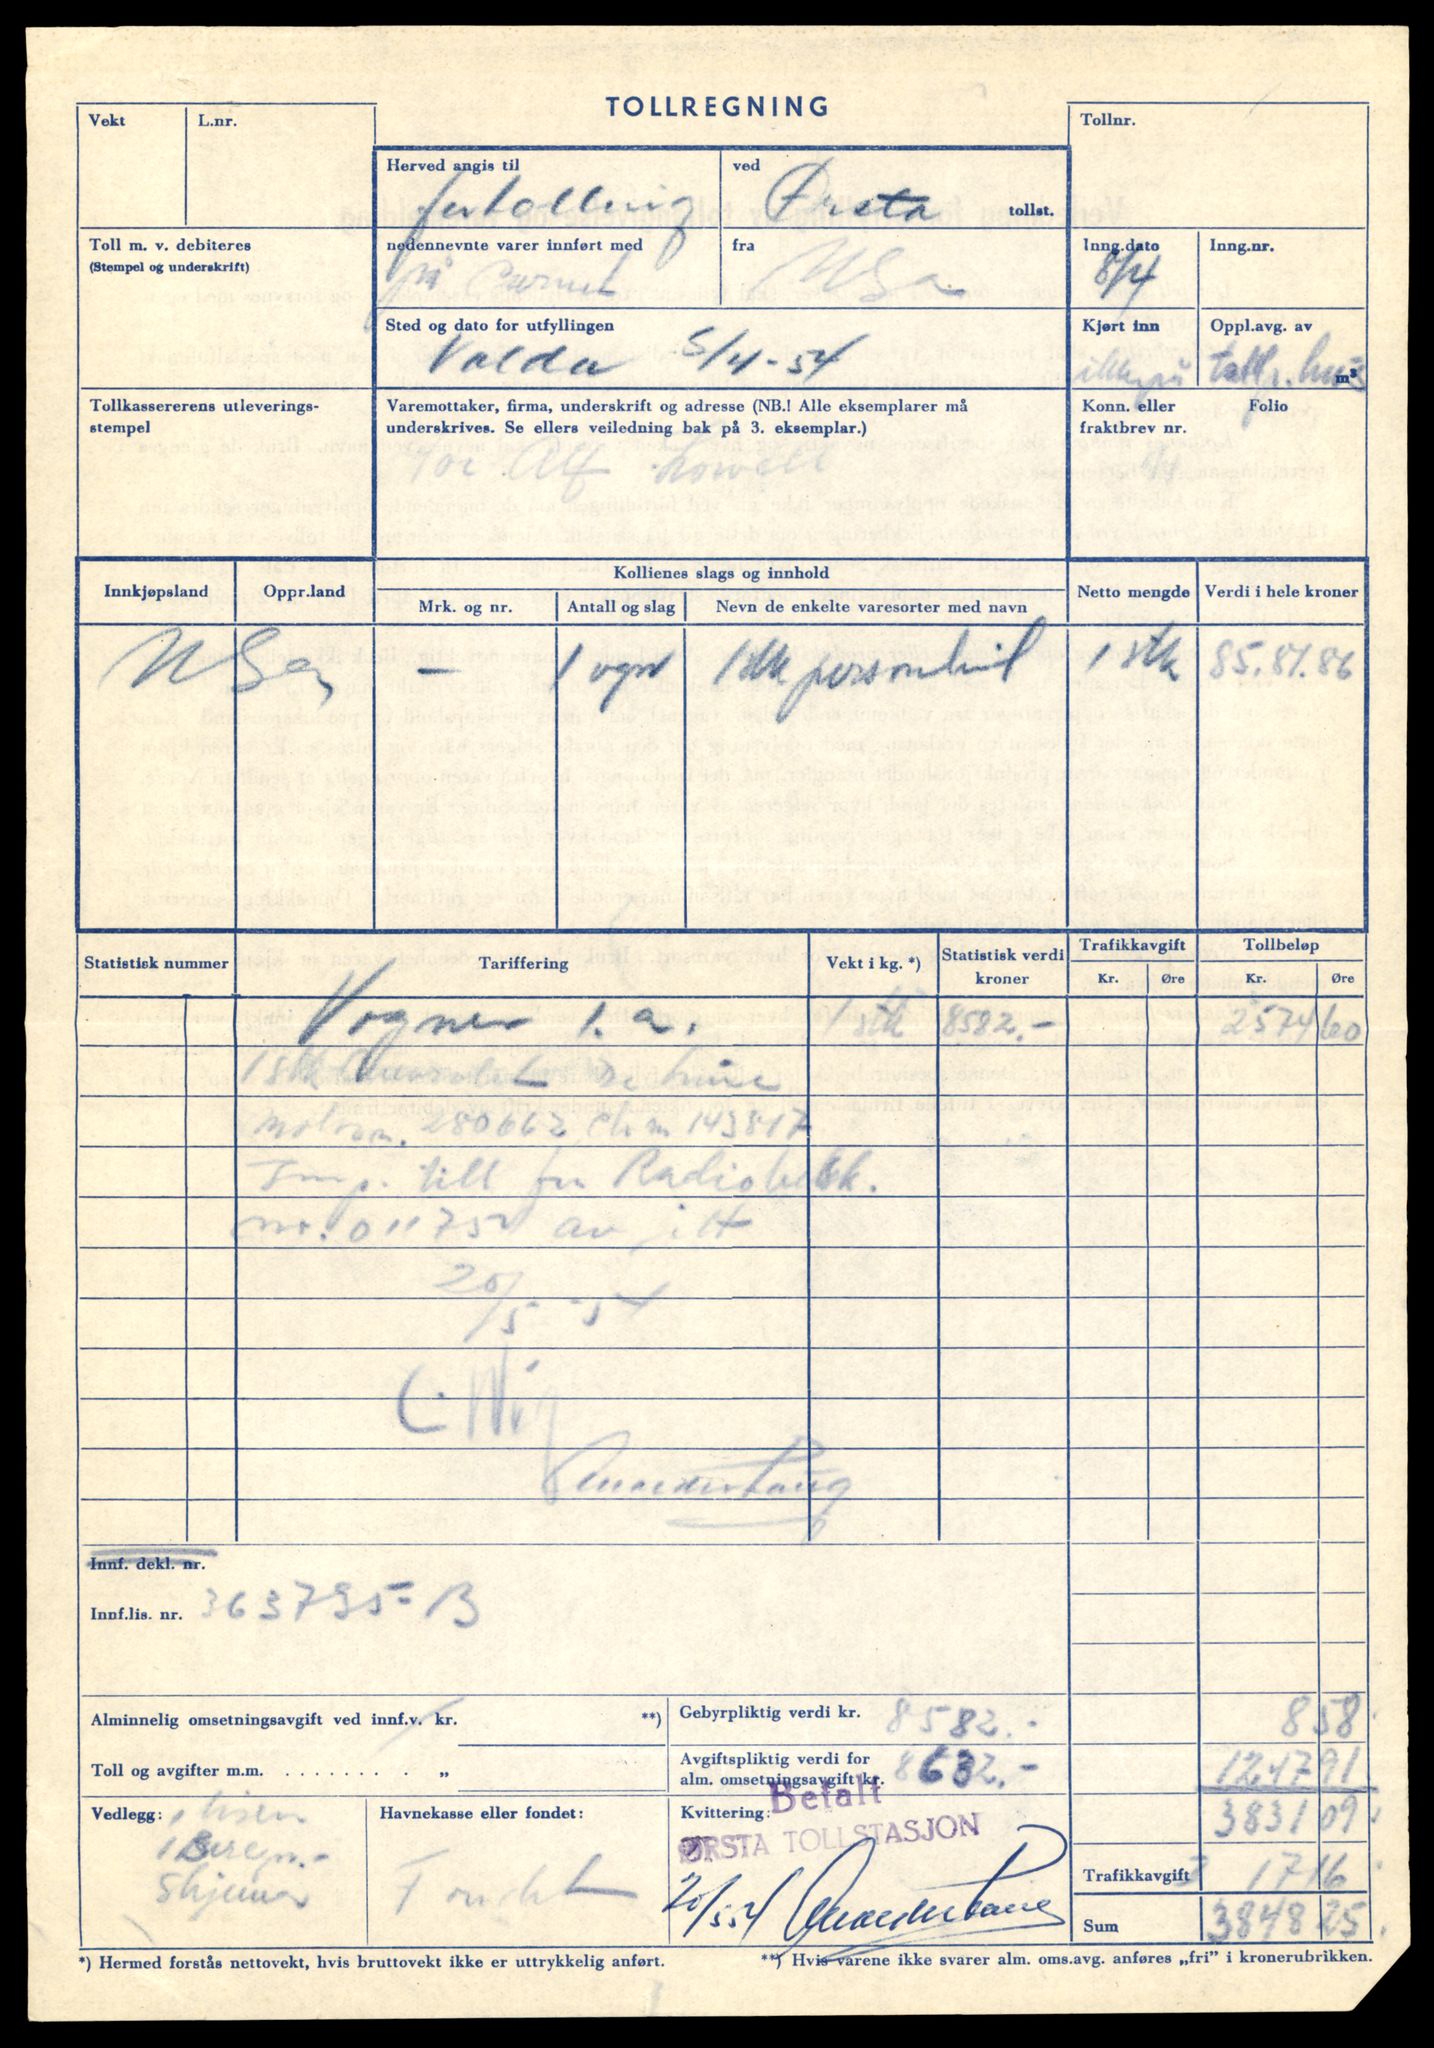 TOLLREGNING
Vekt
L.nr.
Tollnr.
Herved angis til
ved
fortolling
Ørsta tollst.
Toll m. v. debiteres
(Stempel og underskrift)
nedennevnte varer innført med
fra
Inng.dato
Inng.nr.
på
USA
8/4
Sted og dato for utfyllingen
Kjørt inn
Oppl.avg. av
Volda 5/4-54
m³
Tollkassererens utleverings-
stempel
Varemottaker, firma, underskrift og adresse (NB.! Alle eksemplarer må
underskrives. Se ellers veiledning bak på 3. eksemplar.)
Konn. eller
fraktbrev nr.
Folio
Alf
Innkjøpsland
Oppr.land
Kollienes slags og innhold
Mrk. og nr.
Antall og slag
Nevn de enkelte varesorter med navn
Netto mengde
Verdi i hele kroner
USA - 1 vogn 1 stk personbil 1 stk 85.81.86
Statistisk nummer
Tariffering
Vekt i kg. *)
Statistisk verdi
kroner
Trafikkavgift
Kr.
Øre
Tollbeløp
Kr.
Øre
Vogner 1.a. 1 stk 8582.- 2574 60
1 stk Chevrolet
Motornr. 280662 Ch nr 143817
Imp. till fra
nr. 011752 av
20/5-54
Innf. dekl. nr.
Innf.lis. nr. 363795-B
Alminnelig omsetningsavgift ved innf.v. kr.
**)
Gebyrpliktig verdi kr. 8582.-
858
Toll og avgifter m.m. . . . . . . . . „
Avgiftspliktig verdi for
alm. omsetningsavgift kr. 8632.-
1247 91
Vedlegg:
Havnekasse eller fondet:
Kvittering:
Betalt
3831 09
ØRSTA TOLLSTASJON
Skjema
Fondet
20/5 54
Trafikkavgift 17 16
Sum 3848 25
*) Hermed forstås nettovekt, hvis bruttovekt ikke er uttrykkelig anført.
**) Hvis varene ikke svarer alm. oms.avg. anføres „fri” i kronerubrikken.